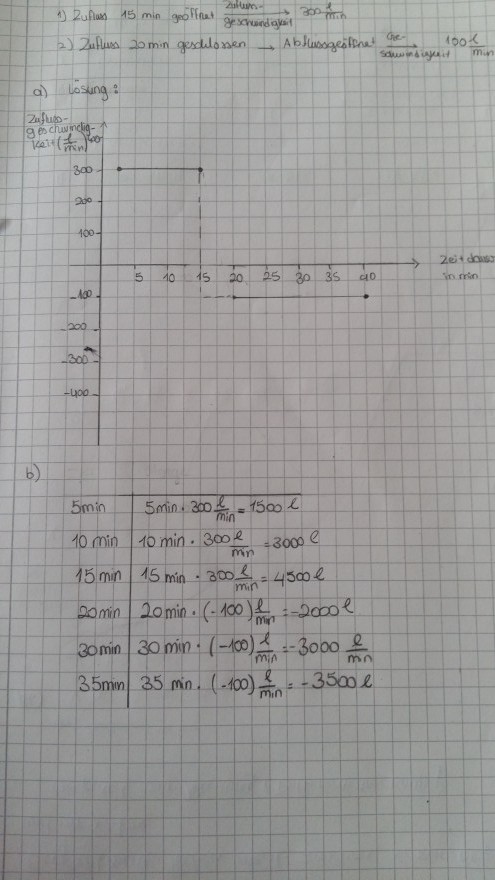 1) Zufluss 15 min geöffnet Zufluss-geschwindigkeit → 300 l/min
2) Zufluss 20 min geschlossen → Abfluss geöffnet Ge-schwindigkeit → 100 l/min
a) Lösung:
Zufluss-
geschwindig-
keit (l/min)
300
200
100
5 10 15 20 25 30 35 40
Zeitdauer
in min
-100
-200
-300
-400
b)
5min 5min · 300 l/min = 1500 l
10 min 10 min · 300 l/min = 3000 l
15 min 15 min · 300 l/min = 4500 l
20min 20min · (-100) l/min = -2000 l
30min 30 min · (-100) l/min = -3000 l/min
35min 35 min · (-100) l/min = -3500 l